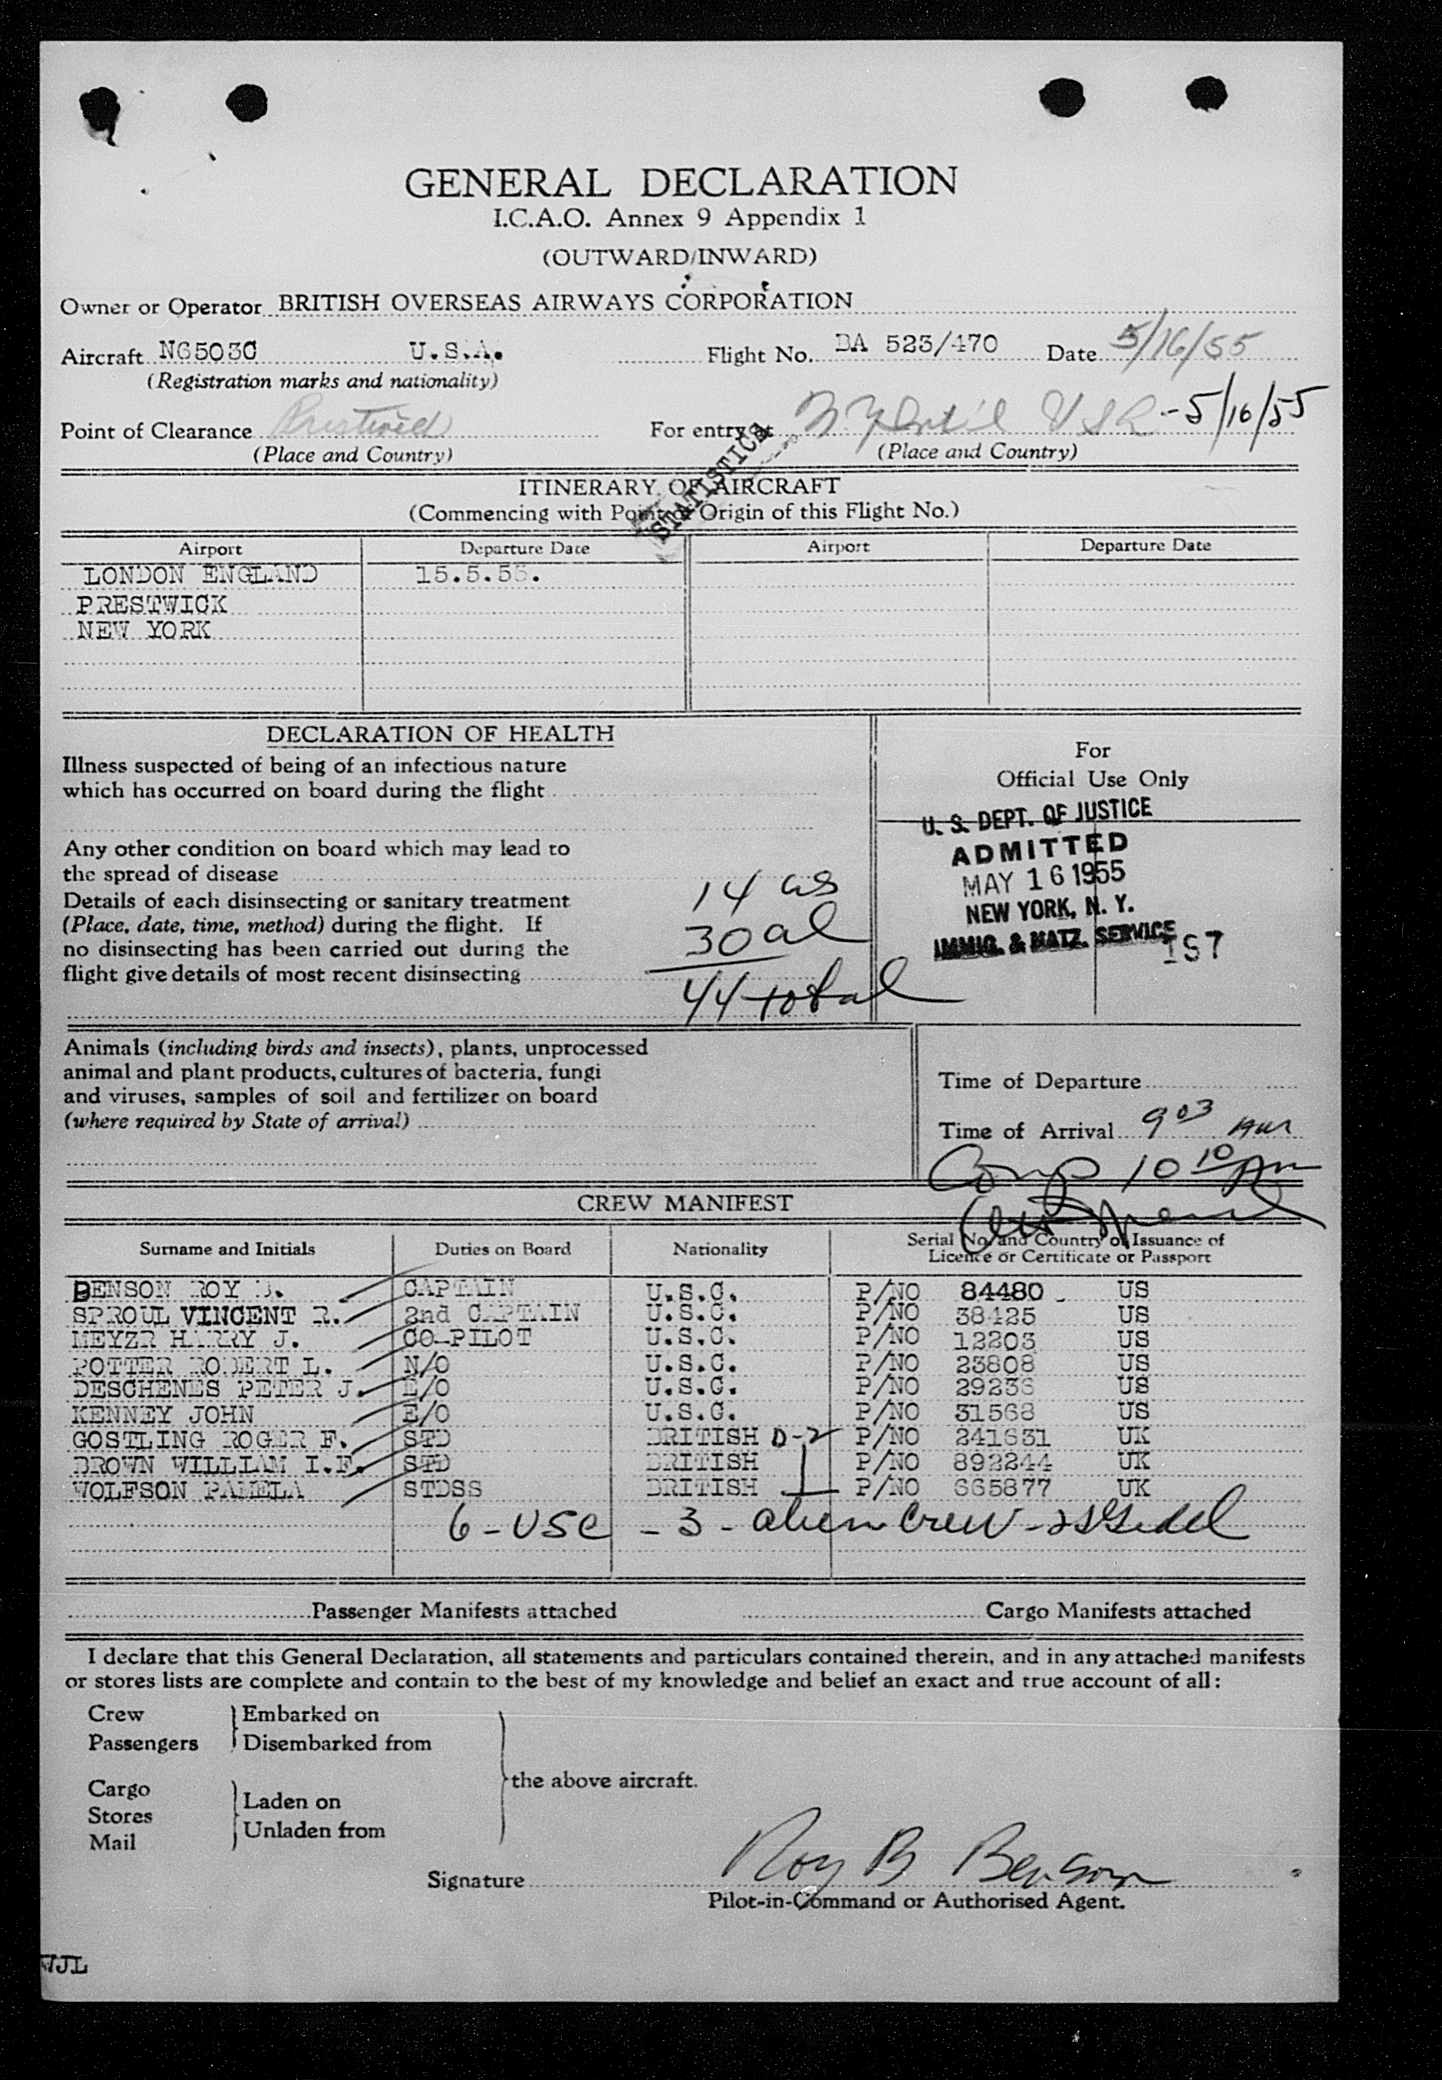 GENERAL DECLARATION
I.C.A.O. Annex 9 Appendix 1
(OUTWARD/INWARD)
Owner or Operator BRITISH OVERSEAS AIRWAYS CORPORATION
Aircraft N6503C U.S.A. Flight No. BA 523/470 Date 5/16/55
(Registration marks and nationality)
Point of Clearance Prestwick For entry at N.Y. Int'l USA - 5/16/55
(Place and Country) (Place and Country)
STATISTICS
ITINERARY OF AIRCRAFT
(Commencing with Point of Origin of this Flight No.)
Airport Departure Date Airport Departure Date
LONDON ENGLAND 15.5.55.
PRESTWICK
NEW YORK
DECLARATION OF HEALTH
Illness suspected of being of an infectious nature
which has occurred on board during the flight
Any other condition on board which may lead to
the spread of disease
Details of each disinsecting or sanitary treatment
(Place, date, time, method) during the flight. If
no disinsecting has been carried out during the
flight give details of most recent disinsecting
14 us
30 al
44 total
For
Official Use Only
U. S. DEPT. OF JUSTICE
ADMITTED
MAY 16 1955
NEW YORK, N. Y.
IMMIG. & NATZ. SERVICE
157
Animals (including birds and insects), plants, unprocessed
animal and plant products, cultures of bacteria, fungi
and viruses, samples of soil and fertilizer on board
(where required by State of arrival)
Time of Departure
Time of Arrival 9 03 AM
Comp 10 10 AM
CREW MANIFEST
Surname and Initials Duties on Board Nationality Serial No. and Country of Issuance of
Licence or Certificate or Passport
BENSON ROY B. CAPTAIN U.S.C. P/NO 84480 US
SPROUL VINCENT R. 2nd CAPTAIN U.S.C. P/NO 38425 US
MEYZR HARRY J. CO-PILOT U.S.C. P/NO 12203 US
POTTER ROBERT L. N/O U.S.C. P/NO 23808 US
DESCHENES PETER J. E/O U.S.C. P/NO 29236 US
KENNEY JOHN E/O U.S.C. P/NO 31568 US
GOSTLING ROGER F. STD BRITISH D-2 P/NO 241631 UK
BROWN WILLIAM I.F. STD BRITISH P/NO 892244 UK
WOLFSON PAMELA STDSS BRITISH P/NO 665877 UK
6 - USC - 3 - alien crew -
Passenger Manifests attached Cargo Manifests attached
I declare that this General Declaration, all statements and particulars contained therein, and in any attached manifests
or stores lists are complete and contain to the best of my knowledge and belief an exact and true account of all:
Crew Embarked on
Passengers Disembarked from
the above aircraft.
Cargo Laden on
Stores
Mail Unladen from
Signature Roy B Benson
Pilot-in-Command or Authorised Agent.
WJL